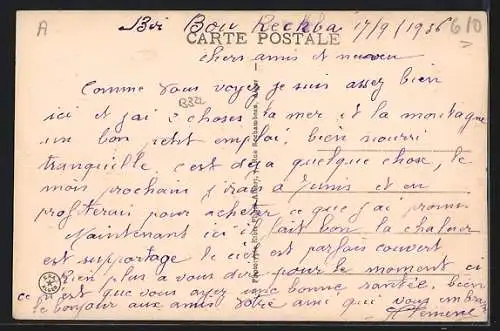 A Bir Bou Rechba 17/9/1936 610
CARTE POSTALE
chers amis et neveu
Comme vous voyez je suis assez bien
ici et j'ai 3 choses la mer et la montagne
un bon petit emploi, bien nourri
tranquille, c'est déjà quelque chose, le
mois prochain j'irai à Tunis et en
profiterai pour acheter ce que j'ai promis
Maintenant ici il fait bon la chaleur
est supportable le ciel est parfois couvert
bien plus a vous dire pour le moment si
ce est que vous ayez une bonne santée, bien
le bonjour aux amis votre ami qui vous embra